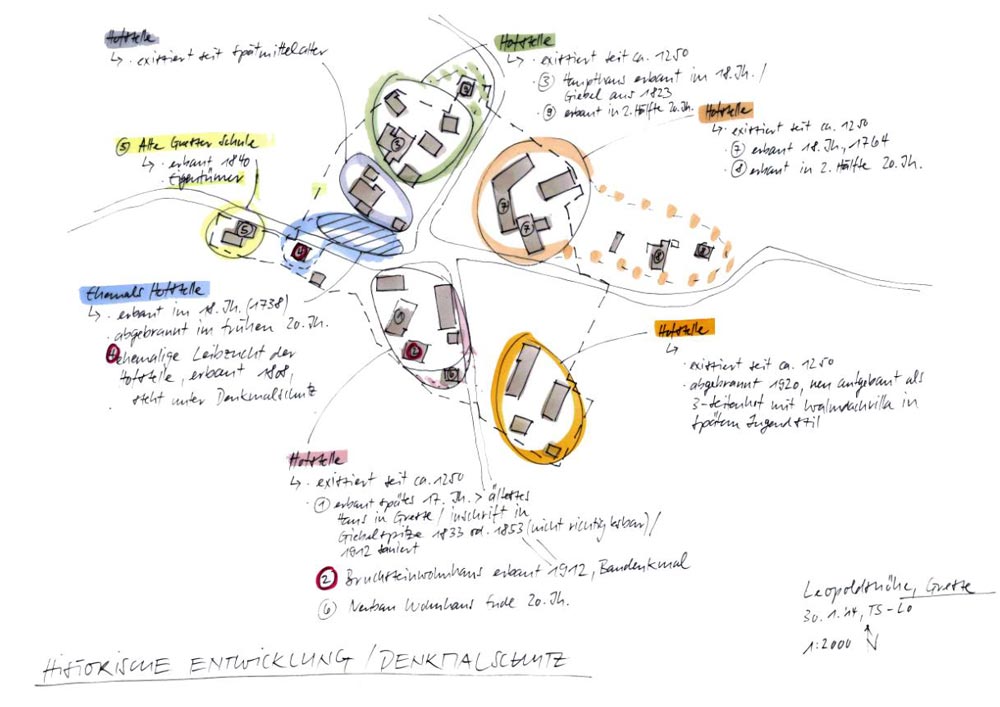 Hofstelle
↳ · existiert seit Spätmittelalter
Hofstelle
↳ · existiert seit ca. 1250
· ③ Haupthaus erbaut im 18. Jh. /
Giebel aus 1823
· ⑨ erbaut in 2. Hälfte 20. Jh.
Hofstelle
↳ · existiert seit ca. 1250
· ⑦ erbaut 18. Jh., 1764
· ⑧ erbaut in 2. Hälfte 20. Jh.
⑤ Alte Grester Schule
↳ · erbaut 1840
· Eigentümer
Ehemals Hofstelle
↳ · erbaut im 18. Jh. (1738)
· abgebrannt im frühen 20. Jh.
④ ehemalige Leibzucht der
Hofstelle, erbaut 1808,
· steht unter Denkmalschutz
Hofstelle
↳
· existiert seit ca. 1250
· abgebrannt 1920, neu aufgebaut als
3-Seitenhof mit Walmdachvilla in
spätem Jugendstil
Hofstelle
↳ · existiert seit ca. 1250
· ① erbaut spätes 17. Jh. > ältestes
Haus in Greste / Inschrift in
Giebelspitze 1833 od. 1853 (nicht richtig lesbar) /
1912 saniert
② Bruchsteinwohnhaus erbaut 1912, Baudenkmal
⑥ Neubau Wohnhaus Ende 20. Jh.
Leopoldshöhe, Greste
30.1.14, TS-LO
1:2000 N
HISTORISCHE ENTWICKLUNG / DENKMALSCHUTZ